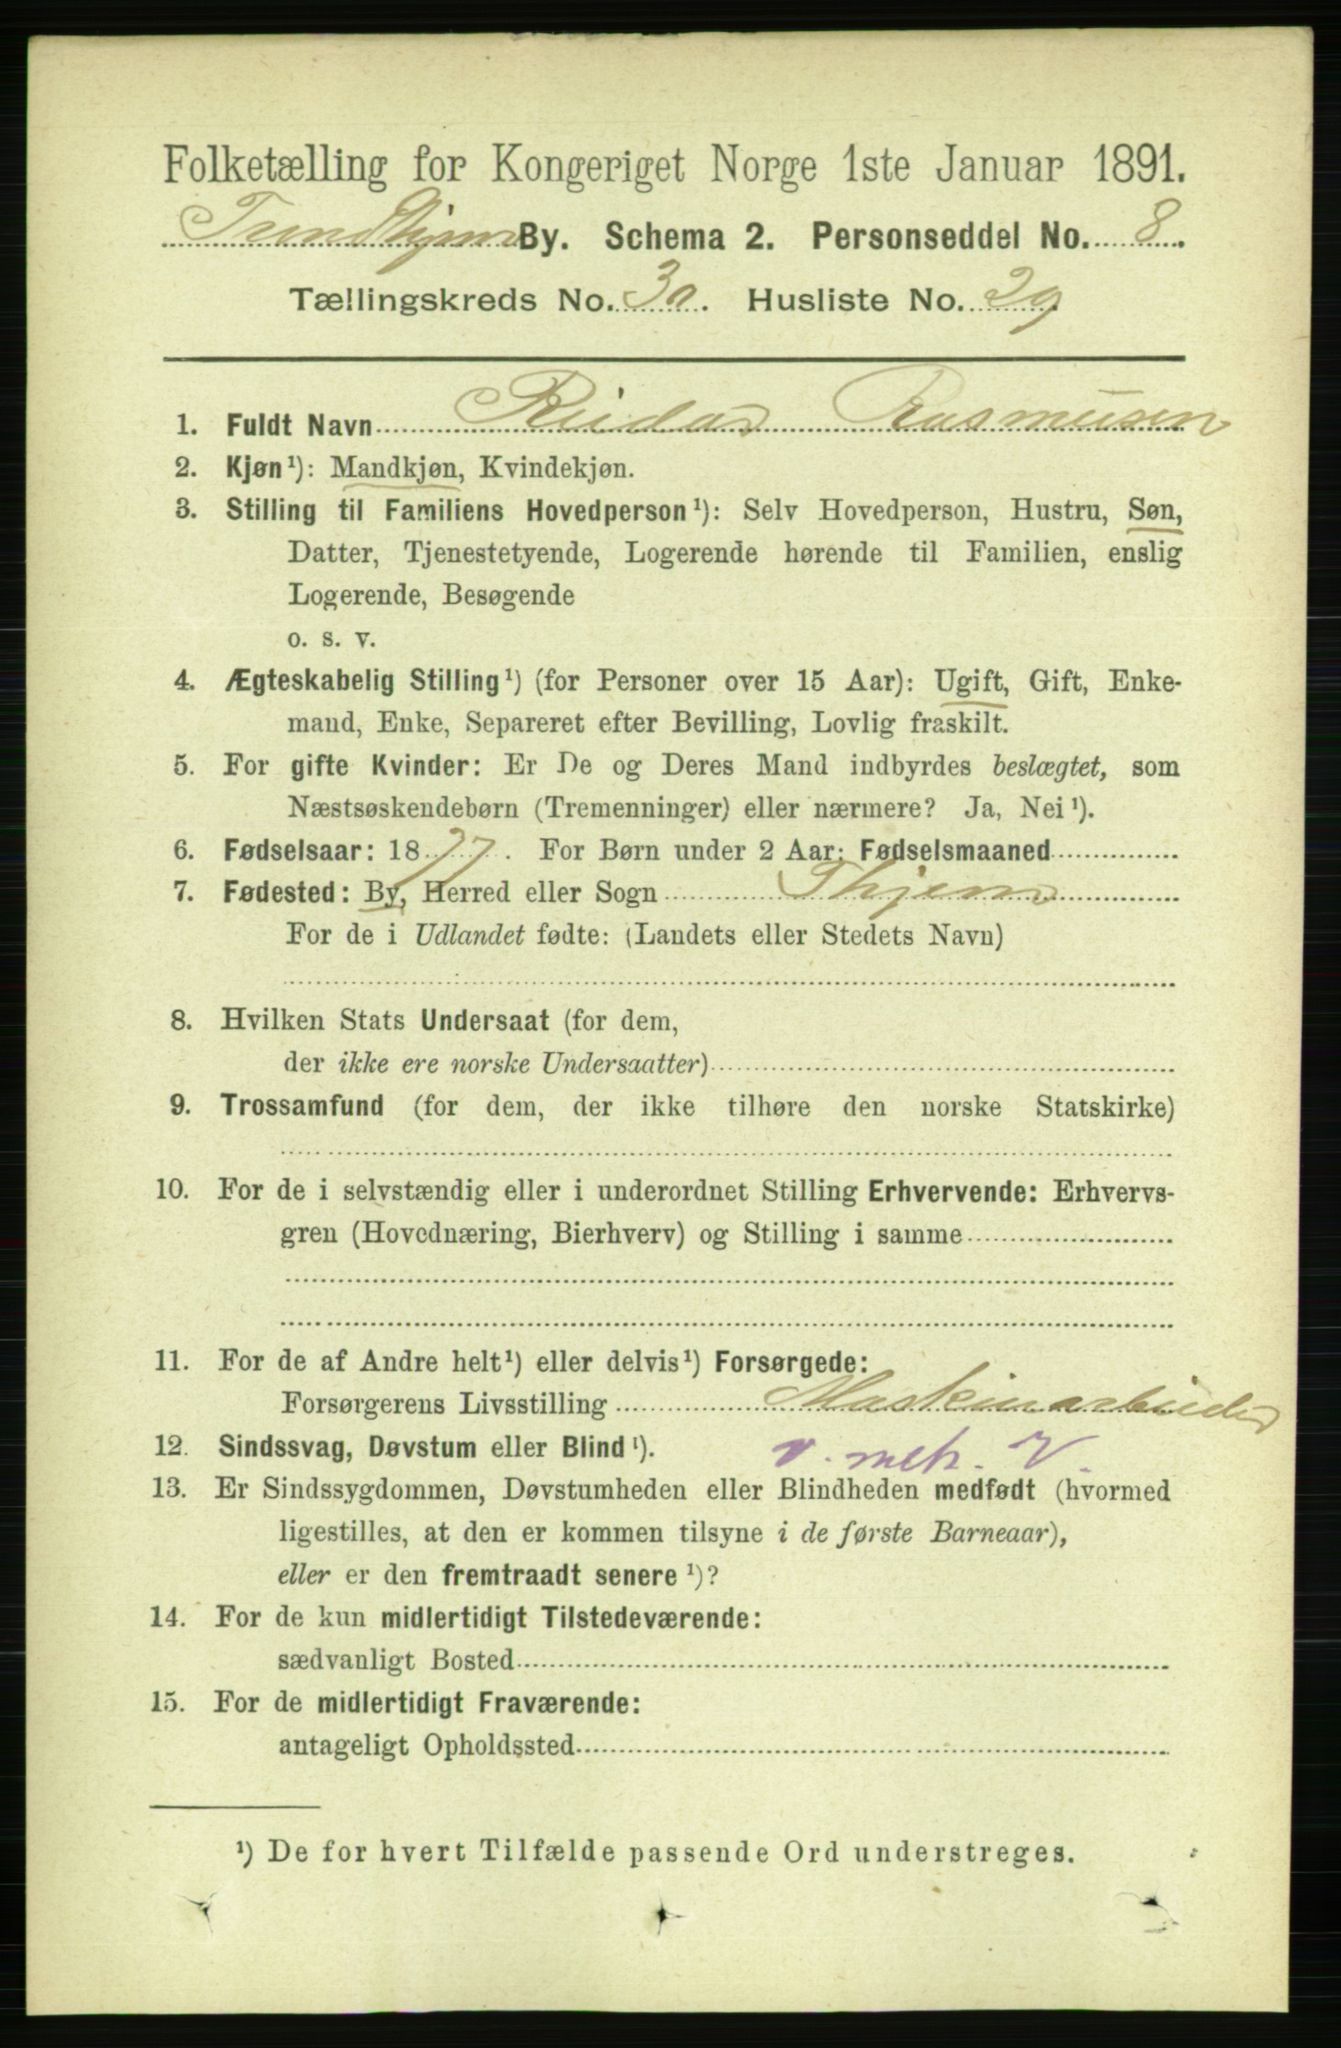 Folketælling for Kongeriget Norge 1ste Januar 1891.
Trondhjem By. Schema 2. Personseddel No. 8.
Tællingskreds No. 3a. Husliste No. 29
1. Fuldt Navn Reidar Rasmusen
2. Kjøn¹): Mandkjøn, Kvindekjøn.
3. Stilling til Familiens Hovedperson¹): Selv Hovedperson, Hustru, Søn,
Datter, Tjenestetyende, Logerende hørende til Familien, enslig
Logerende, Besøgende
o. s. v.
4. Ægteskabelig Stilling¹) (for Personer over 15 Aar): Ugift, Gift, Enke-
mand, Enke, Separeret efter Bevilling, Lovlig fraskilt.
5. For gifte Kvinder: Er De og Deres Mand indbyrdes beslægtet, som
Næstsøskendebørn (Tremenninger) eller nærmere? Ja, Nei¹).
6. Fødselsaar: 1877. For Børn under 2 Aar: Fødselsmaaned
7. Fødested: By, Herred eller Sogn Thjem
For de i Udlandet fødte: (Landets eller Stedets Navn)
8. Hvilken Stats Undersaat (for dem,
der ikke ere norske Undersaatter)
9. Trossamfund (for dem, der ikke tilhøre den norske Statskirke)
10. For de i selvstændig eller i underordnet Stilling Erhvervende: Erhvervs-
gren (Hovednæring, Bierhverv) og Stilling i samme
11. For de af Andre helt¹) eller delvis¹) Forsørgede:
Forsørgerens Livsstilling Maskinarbeider
12. Sindssvag, Døvstum eller Blind¹). v. mek. V.
13. Er Sindssygdommen, Døvstumheden eller Blindheden medfødt (hvormed
ligestilles, at den er kommen tilsyne i de første Barneaar),
eller er den fremtraadt senere¹)?
14. For de kun midlertidigt Tilstedeværende:
sædvanligt Bosted
15. For de midlertidigt Fraværende:
antageligt Opholdssted
¹) De for hvert Tilfælde passende Ord understreges.